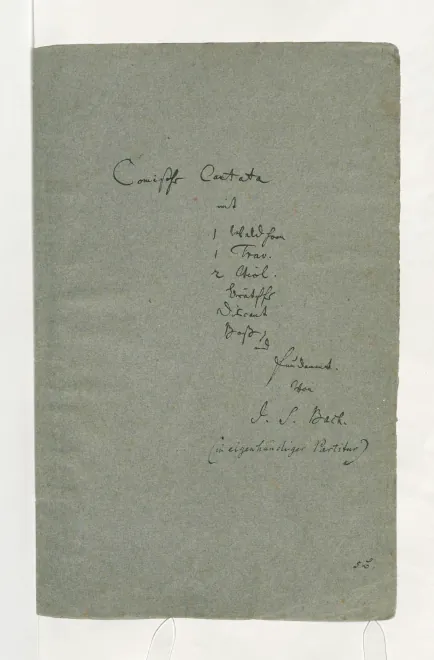 Comische Cantata
mit
1 Waldhorn
1 Trav.
2 Viol.
Bratsche
Discant
Baß, und
fundament.
von
J. S. Bach.
(in eigenhändiger Partitur)